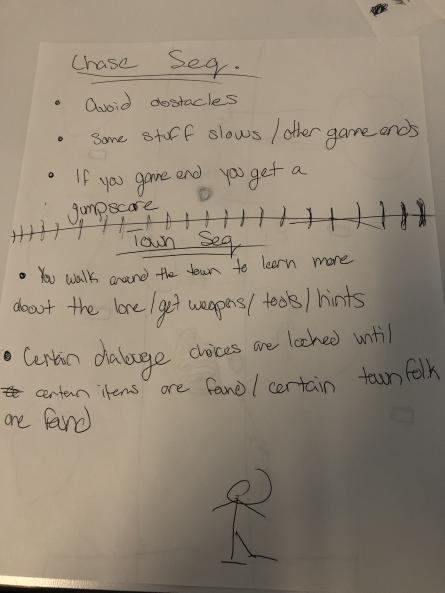 Chase Seq.
• Avoid obstacles
• Some stuff slows / other game ends
• If you game end you get a
jumpscare
Town Seq
• You walk around the town to learn more
about the lore/get weapons/tools/hints
• Certain dialouge choices are locked until
certain items are found/certain townfolk
are found